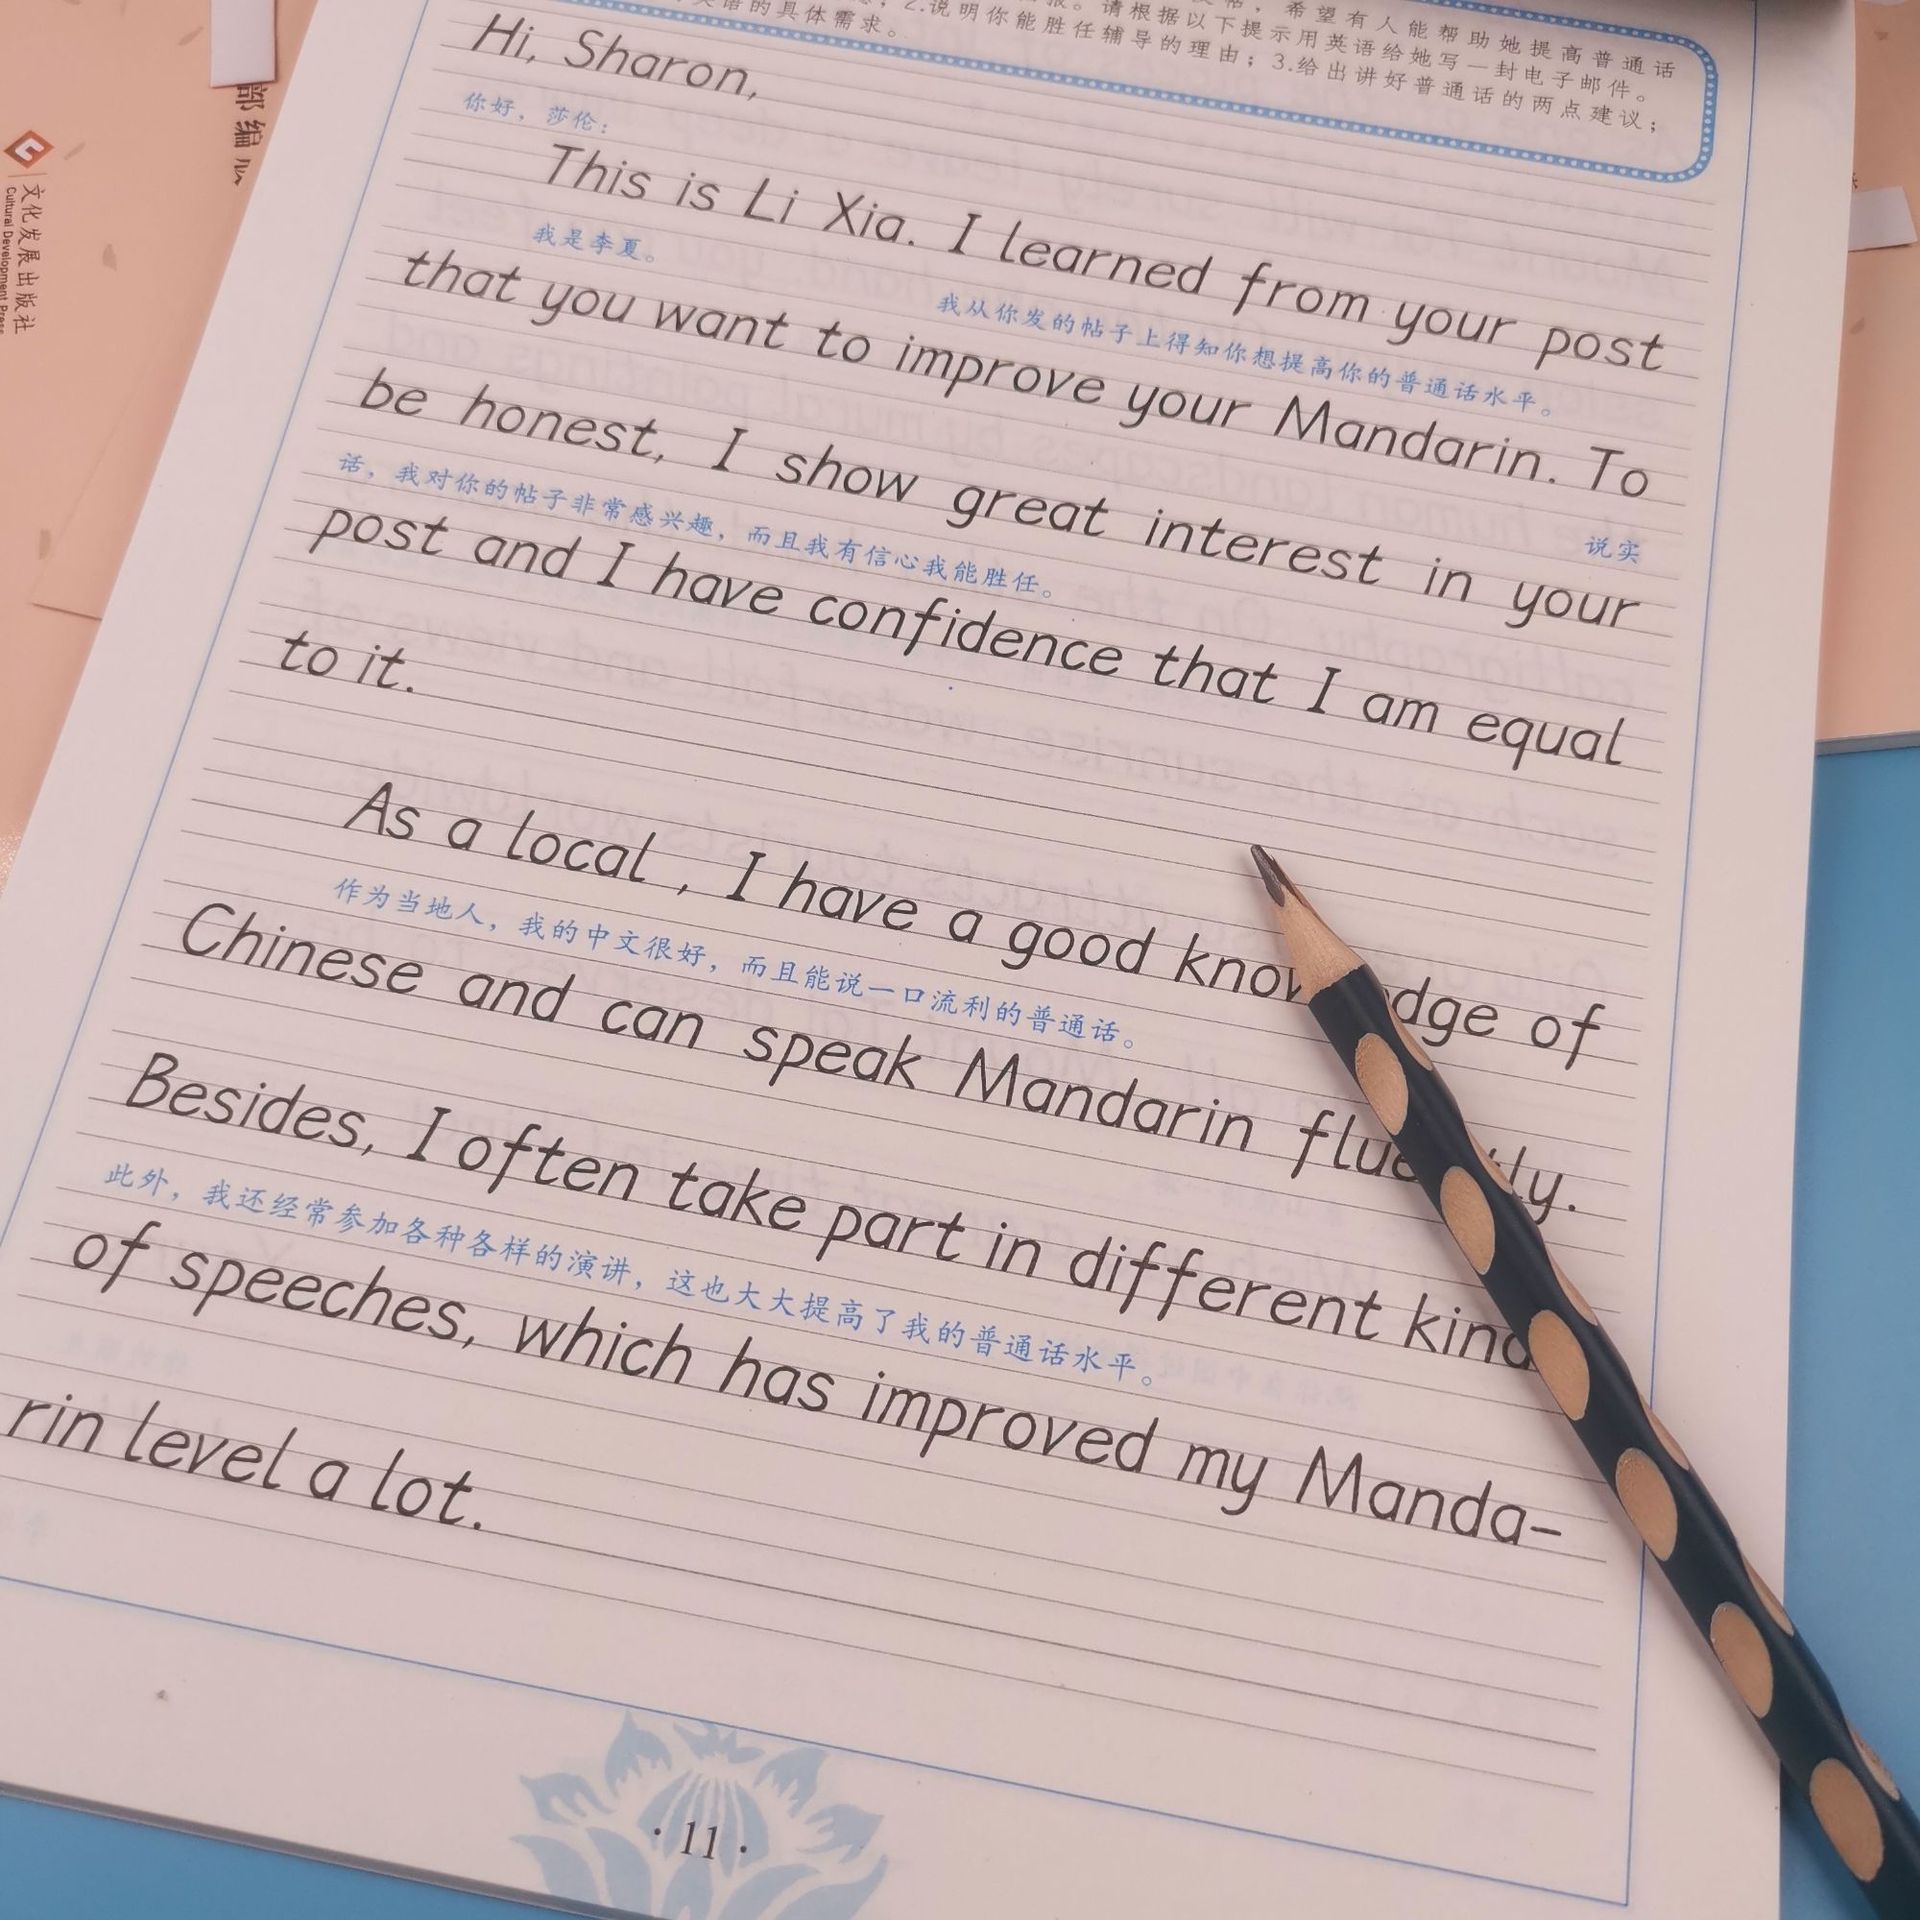 希望有人能帮助她提高普通话
请根据以下提示用英语给她写一封电子邮件。
英语的具体需求。
2.说明你能胜任辅导的理由；3.给出讲好普通话的两点建议；
Hi, Sharon,
你好，莎伦：
This is Li Xia. I learned from your post
我是李夏。
我从你发的帖子上得知你想提高你的普通话水平。
that you want to improve your Mandarin. To
说实
be honest, I show great interest in your
话，我对你的帖子非常感兴趣，而且我有信心我能胜任。
post and I have confidence that I am equal
to it.
As a local, I have a good of
作为当地人，我的中文很好，而且能说一口流利的普通话。
Chinese and can speak Mandarin
Besides, I often take part in different
此外，我还经常参加各种各样的演讲，这也大大提高了我的普通话水平。
of speeches, which has improved my Manda-
rin level a lot.
· 11 ·
部编
文化发展出版社
Cultural Development Press